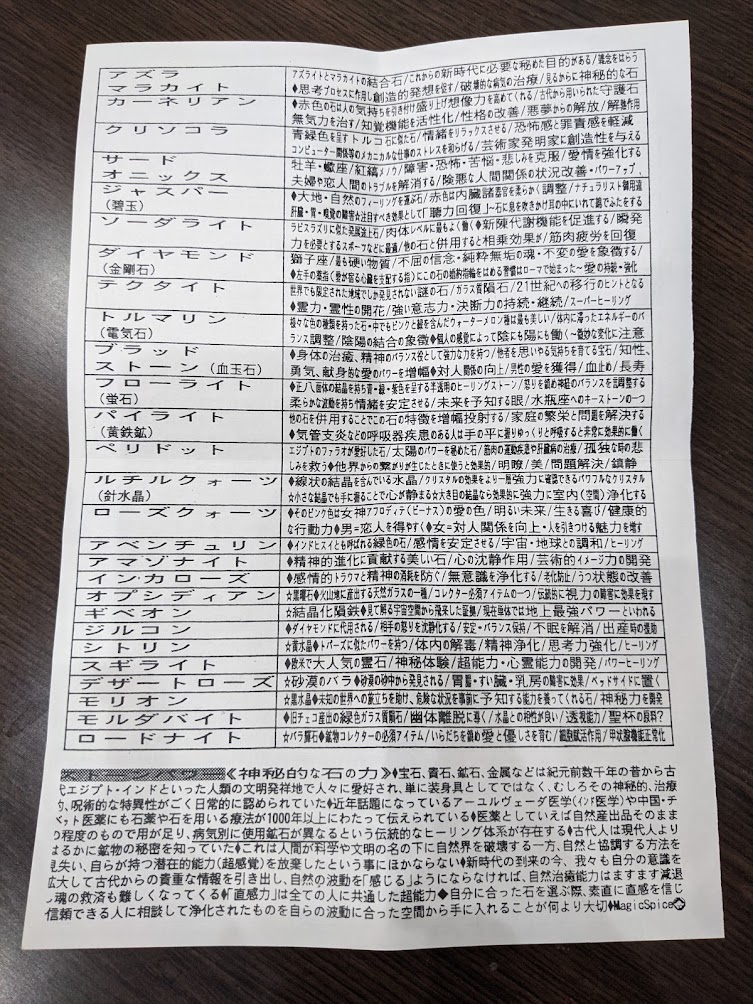 アズラ
マラカイト
アズライトとマラカイトの結合石/これからの新時代に必要な秘めた目的がある/雑念をはらう
◆思考プロセスに作用し創造的発想を促す/破壊的な病気の治療/見るからに神秘的な石
カーネリアン
◆赤色の石は人の気持ちを引き付け盛り上げ想像力を高めてくれる/古代から用いられた守護石
無気力を治す/知覚機能を活性化/性格の改善/悪夢からの解放/解毒作用
クリソコラ
青緑色を呈すトルコ石に似た石/情緒をリラックスさせる/恐怖感と罪責感を軽減
コンピューター関係等のメカニカルな仕事のストレスを和らげる/芸術家発明家に創造性を与える
サード
オニックス
牡羊・蠍座/紅縞メノウ/障害・恐怖・苦悩・悲しみを克服/愛情を強化する
夫婦や恋人間のトラブルを解消する/険悪な人間関係の状況改善・パワーアップ
ジャスパー
(碧玉)
◆大地・自然のフィーリングを運ぶ石/赤色は内臓諸器官を柔らかく調整/ナチュラリスト御用達
肝臓・胃・嗅覚の障害☆注目すべき効果として「聴力回復」~石に息を吹きかけ耳の中にいれて綿でふたをする
ソーダライト
ラピスラズリに似た発展途上石/肉体レベルに最もよく働く◆新陳代謝機能を促進する/瞬発
力を必要とするスポーツなどに最適/他の石と併用すると相乗効果が/筋肉疲労を回復
ダイヤモンド
(金剛石)
獅子座/最も硬い物質/不屈の信念・純粋無垢の魂・不変の愛を象徴する/
◆左手の薬指(愛が宿る心臓を支配する指)にこの石の婚約指輪をはめる習慣はローマで始まった~愛の持続・強化
テクタイト
世界でも限定された地域でしか発見されない謎の石/ガラス質隕石/21世紀への移行のヒントとなる
◆霊力・霊性の開花/強い意志力・決断力の持続・継続/スーパーヒーリング
トルマリン
(電気石)
様々な色の種類を持った石・中でもピンクと緑を含んだウォーターメロン種は最も美しい/体内に滞ったエネルギーのバ
ランス調整/陰陽の結合の象徴◆個人の感覚によって陰にも陽にも働く~微妙な変化に注意
ブラッド
ストーン(血玉石)
◆身体の治癒、精神のバランス役として強力な力を持つ/他者を思いやる気持ちを育てる宝石/知性、
勇気、献身的な愛のパワーを増幅◆対人関係の向上/男性の愛を獲得/血止め/長寿
フローライト
(蛍石)
◆正八面体の結晶を持ち青・緑・紫色を呈する半透明のヒーリングストーン/怒りを鎮め神経のバランスを調整する
柔らかな波動を持ち情緒を安定させる/未来を予知する眼/水瓶座へのキーストーンの一つ
パイライト
(黄鉄鉱)
他の石を併用することでこの石の特徴を増幅投射する/家庭の繁栄と問題を解決する
◆気管支炎などの呼吸器疾患のある人は手の平に握りゆっくりと呼吸すると非常に効果的に働く
ペリドット
エジプトのファラオが愛好した石/太陽のパワーを秘めた石/筋肉の運動疾患や肝臓病の治療/孤独な時の悲
しみを救う◆他界からの繋がりが生じたときに使うと効果的/明瞭/美/問題解決/鎮静
ルチルクォーツ
(針水晶)
◆線状の結晶を含んでいる水晶/クリスタルの効果をより一層強力に確認できるパワフルなクリスタル
☆小さな結晶でも手に握ることで心が静まる☆大き目の結晶なら効果的に強力に室内(空間)浄化する
ローズクォーツ
◆そのピンク色は女神アフロディテ(ビーナス)の愛の色/明るい未来/生きる喜び/健康的
な行動力◆男=恋人を得やすく◆女=対人関係を向上・人を引きつける魅力を増す
アベンチュリン
◆インドヒスイとも呼ばれる緑色の石/感情を安定させる/宇宙・地球との調和/ヒーリング
アマゾナイト
◆精神的進化に貢献する美しい石/心の沈静作用/芸術的イメージ力の開発
インカローズ
◆感情的トラウマと精神の消耗を防ぐ/無意識を浄化する/老化防止/うつ状態の改善
オプシディアン
☆黒曜石◆火山地に産出する天然ガラスの一種/コレクター必須アイテムの一つ/伝説的に視力の障害に効果を現す
ギベオン
☆結晶化隕鉄◆見て解る宇宙空間から飛来した証拠/現在単体では地上最強パワーといわれる
ジルコン
◆ダイヤモンドに代用される/相手の怒りを沈静化する/安定・バランス保持/不眠を解消/出産時の援助
シトリン
☆黄水晶◆トパーズに似たパワー/体内の解毒/精神浄化/思考力強化/ヒーリング
スギライト
◆欧米で大人気の霊石/神秘体験/超能力・心霊能力の開発/パワーヒーリング
デザートローズ
☆石砂漠のバラ◆砂漠の砂中から発見される/胃腸・すい臓・乳房の障害に効果/ベッドサイドに置く
モリオン
☆黒水晶◆未知の世界への旅立ちを助け、危険な状況を事前に予知する能力を養ってくれる石/神秘力を開発
モルダバイト
◆旧チェコ産出の緑褐色ガラス質隕石/幽体離脱に導く/水晶との相性が良い/透視能力/聖杯の原料?
ロードナイト
☆バラ輝石◆鉱物コレクターの必須アイテム/いらだちを鎮め愛と優しさを育む/細胞賦活作用/甲状腺機能正常化
ストーンパワー《神秘的な石の力》◆宝石、貴石、鉱石、金属などは紀元前数千年の昔から古
代エジプト・インドといった人類の文明発祥地で人々に愛好され、単に装身具としてではなく、むしろその神秘的、治療
的、呪術的な特異性がごく日常的に認められていた◆近年話題になっているアーユルヴェーダ医学(インド医学)や中国・チ
ベット医薬にも石薬や石を用いる療法が1000年以上にわたって伝えられている◆医薬としていえば自然産出品そのまま
の程度のもので用が足り、病気別に使用鉱石が異なるという伝統的なヒーリング体系が存在する◆古代人は現代人より
はるかに鉱物の秘密を知っていた◆これは人間が科学や文明の名の下に自然界を破壊する一方、自然と協調する方法を
見失い、自らが持つ潜在的能力(超感覚)を放棄したという事にほかならない◆新時代の到来の今、我々も自分の意識を
拡大して古代からの貴重な情報を引き出し、自然の波動を「感じる」ようにならなければ、自然治癒能力はますます減退
し魂の救済も難しくなってくる◆「直感力」は全ての人に共通した超能力◆自分に合った石を選ぶ際、素直に直感を信じ
信頼できる人に相談して浄化されたものを自らの波動に合った空間から手に入れることが何より大切◆MagicSpice